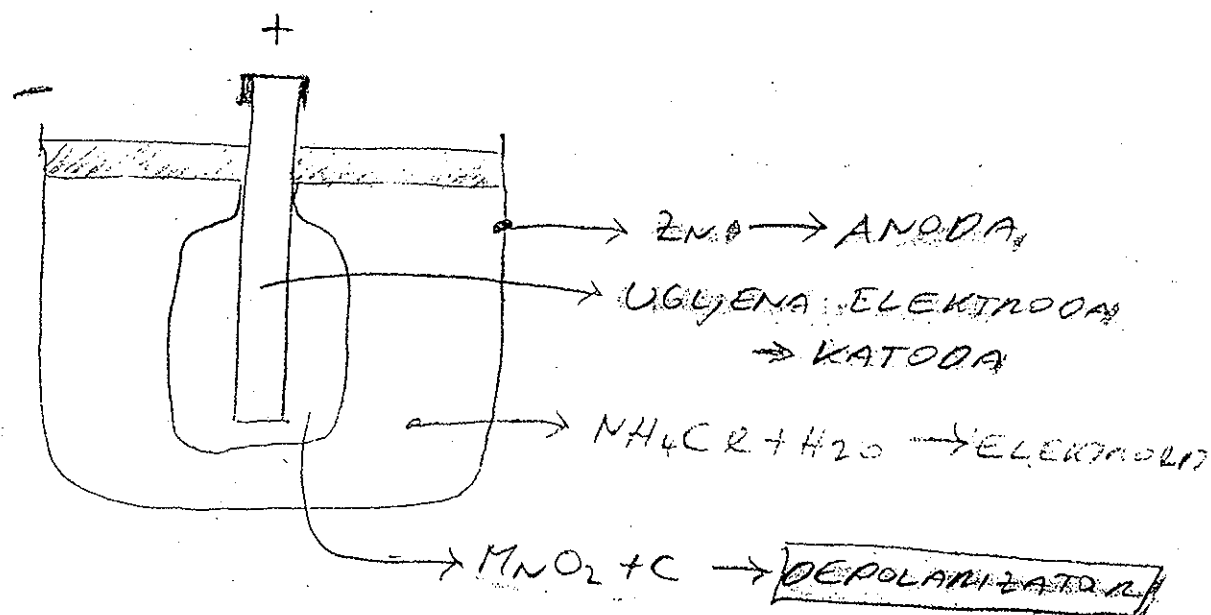 +
−
ZN → ANODA
UGLJENA ELEKTRODA
→ KATODA
NH₄Cl + H₂O → ELEKTROLIT
MNO₂ + C → DEPOLARIZATOR